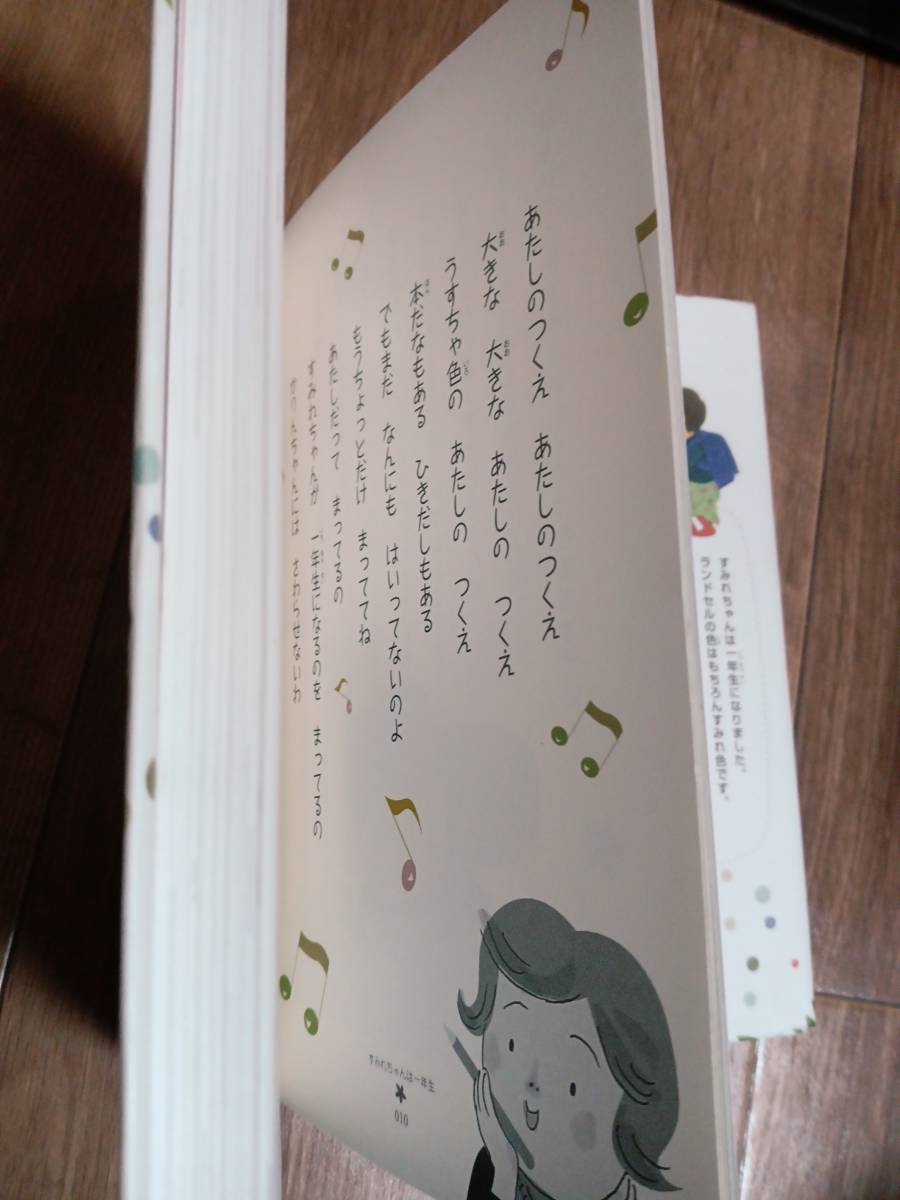 あたしのつくえ　あたしのつくえ
大きな　大きな　あたしの　つくえ
うすちゃ色の　あたしの　つくえ
本だなもある　ひきだしもある
でもまだ　なんにも　はいってないのよ
もうちょっとだけ　まっててね
あたしだって　まってるの
すみれちゃんが　一年生になるのを　まってるの
かりんちゃんには　さわらせないわ
すみれちゃんは一年生
010
すみれちゃんは一年生になりました。
ランドセルの色はもちろんすみれ色です。